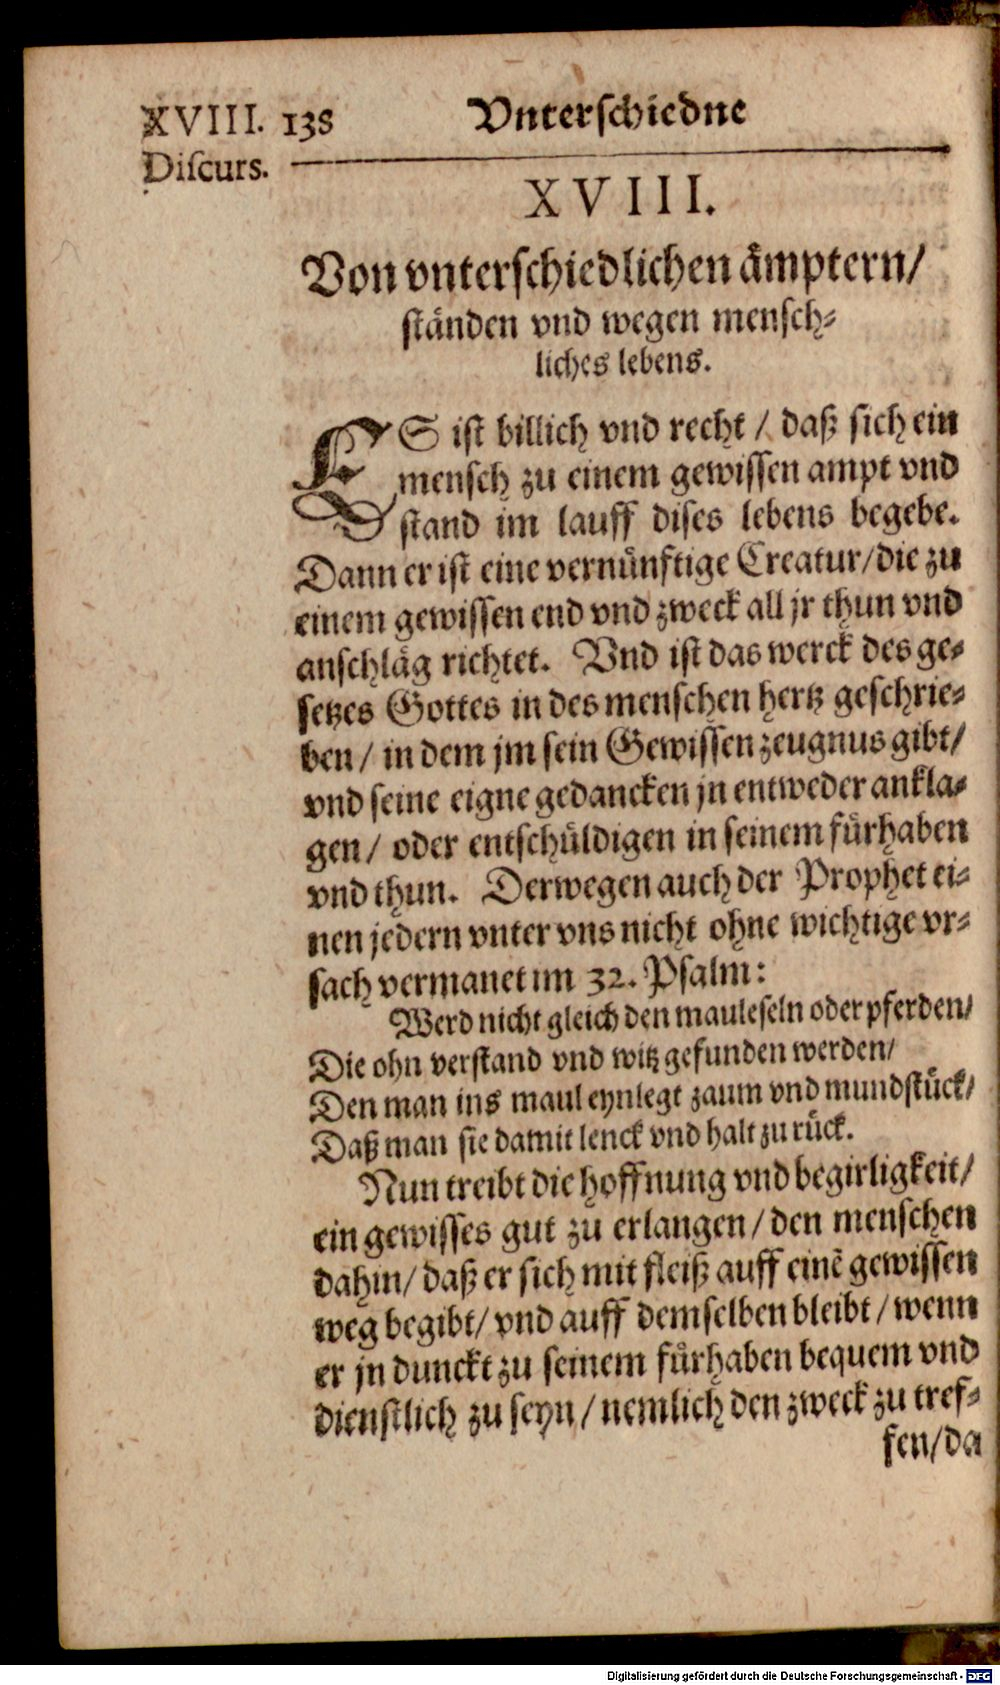 XVIII. 138 Vnterschiedne
Discurs.
XVIII.
Von vnterschiedlichen ämptern/
ständen vnd wegen mensch-
liches lebens.
ES ist billich vnd recht / daß sich ein
mensch zu einem gewissen ampt vnd
stand im lauff dises lebens begebe.
Dann er ist eine vernünftige Creatur/die zu
einem gewissen end vnd zweck all jr thun vnd
anschläg richtet. Vnd ist das werck des ge-
setzes Gottes in des menschen hertz geschrie-
ben / in dem jm sein Gewissen zeugnus gibt/
vnd seine eigne gedancken jn entweder ankla-
gen / oder entschüldigen in seinem fürhaben
vnd thun. Derwegen auch der Prophet ei-
nen jedern vnter vns nicht ohne wichtige vr-
sach vermanet im 32. Psalm:
Werd nicht gleich den mauleseln oder pferden/
Die ohn verstand vnd witz gefunden werden/
Den man ins maul eynlegt zaum vnd mundstück/
Daß man sie damit lenck vnd halt zu rück.
Nun treibt die hoffnung vnd begirligkeit/
ein gewisses gut zu erlangen / den menschen
dahin/ daß er sich mit fleiß auff einē gewissen
weg begibt/ vnd auff demselben bleibt / wenn
er jn dunckt zu seinem fürhaben bequem vnd
dienstlich zu seyn / nemlich den zweck zu tref-
fen/da
Digitalisierung gefördert durch die Deutsche Forschungsgemeinschaft - DFG